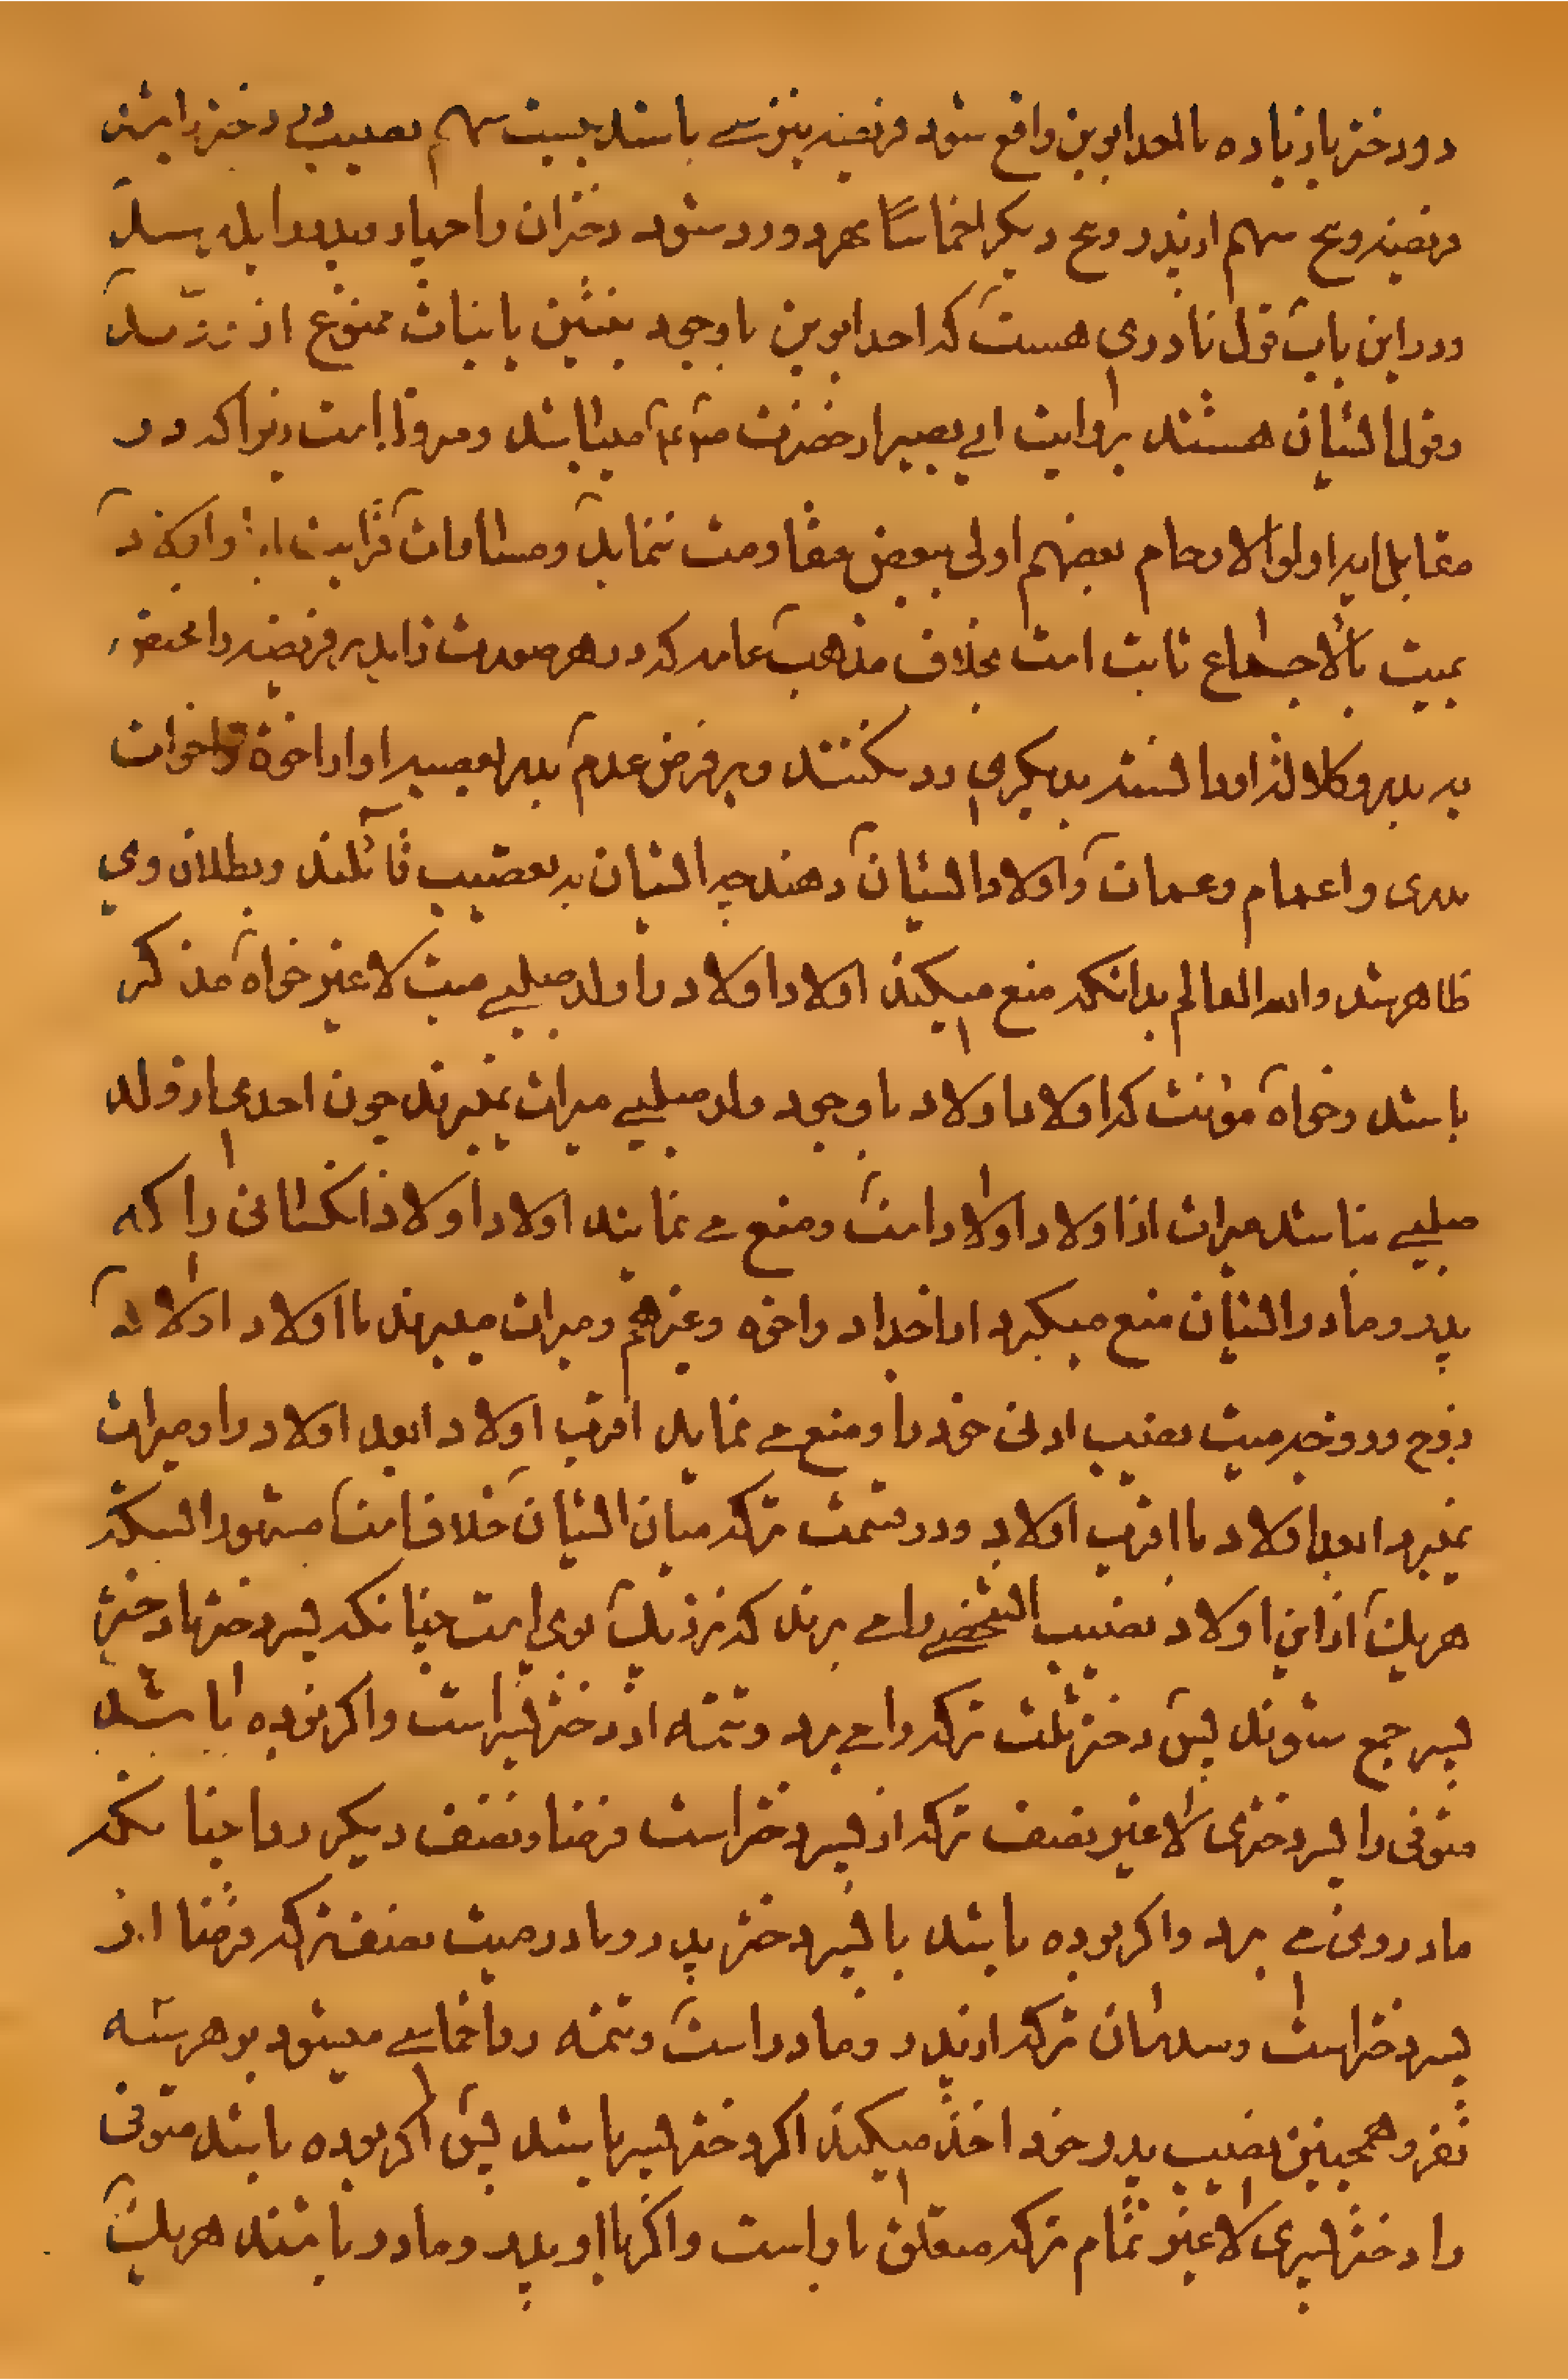 دو دختر یا زیاده با احد ابوین واقع شود فریضه نیز سی باشد بیست سهم نصیب دختر
فریضه و پنج سهم از پدر و پنج دیگر اخماسا بهر دو رد شود دختران را چهار
و در این باب قول نادری هست که احد ابوین با وجود بنتین یا بنات ممنوع از رد
و قول ایشان هستند بروایت ابی بصیر از حضرت میباشد و مردود است زیرا که در
مقابل ایه اولوا الارحام بعضهم اولی ببعض مقاومت ننماید و مساوات قرابت
بمیت بالاجماع ثابت است بخلاف مذهب عامه که در هر صورت زاید بر فریضه را مختص
به پدر و کلاله او دانسته بدیگری رد نکنند و بر فرض عدم پدر بعصبه او از اخوة و اخوات
پدری و اعمام و عمات و اولاد ایشان دهند چه ایشان به تعصیب قائلند و بطلان وی
ظاهر شد والله العالم بدانکه منع میکند اولاد اولاد را ولد صلبی میت لا غیر خواه مذکر
باشد و خواه مؤنث که اولاد اولاد با وجود ولد صلبی میراث نمیبرند چون احدی از ولد
صلبی نباشد میراث از اولاد اولاد است و منع می نمایند اولاد اولاد کسانی را که
پدر و مادر ایشان منع میکرد از اجداد و اخوه و غیرهم و میراث میبرند با اولاد اولاد
زوج و زوجه میت نصیب ادنی خود را و منع می نماید اقرب اولاد ابعد اولاد را و میراث
نمیبرد ابعد اولاد با اقرب اولاد و در قسمت ترکه میان ایشان خلاف است مشهور اینکه
هریک از این اولاد نصیب الشخصی را می برند که نزدیک بوی است چنانکه پسر دختر با دختر
پسر جمع شوند پس دختر ثلث ترکه را می برد و تتمه از دختر پسر است و اگر بوده باشد
متوفی را پسر دختری لا غیر نصف ترکه از پسر دختر است فرضا و نصف دیگر ردا چنانکه
مادر وی می برد و اگر بوده باشد با پسر دختر پدر و مادر میت نصف ترکه فرضا از
پسر دختر است و سدسان ترکه از پدر و مادر است و تتمه رد اخماسی میشود بر هر سه
نفر و همچنین نصیب پدر خود اخذ میکند اگر دختر پسر باشد پس اگر بوده باشد متوفی
را دختر پسری لا غیر تمام ترکه متعلق باو است و اگر با او پدر و مادر باشند هریک